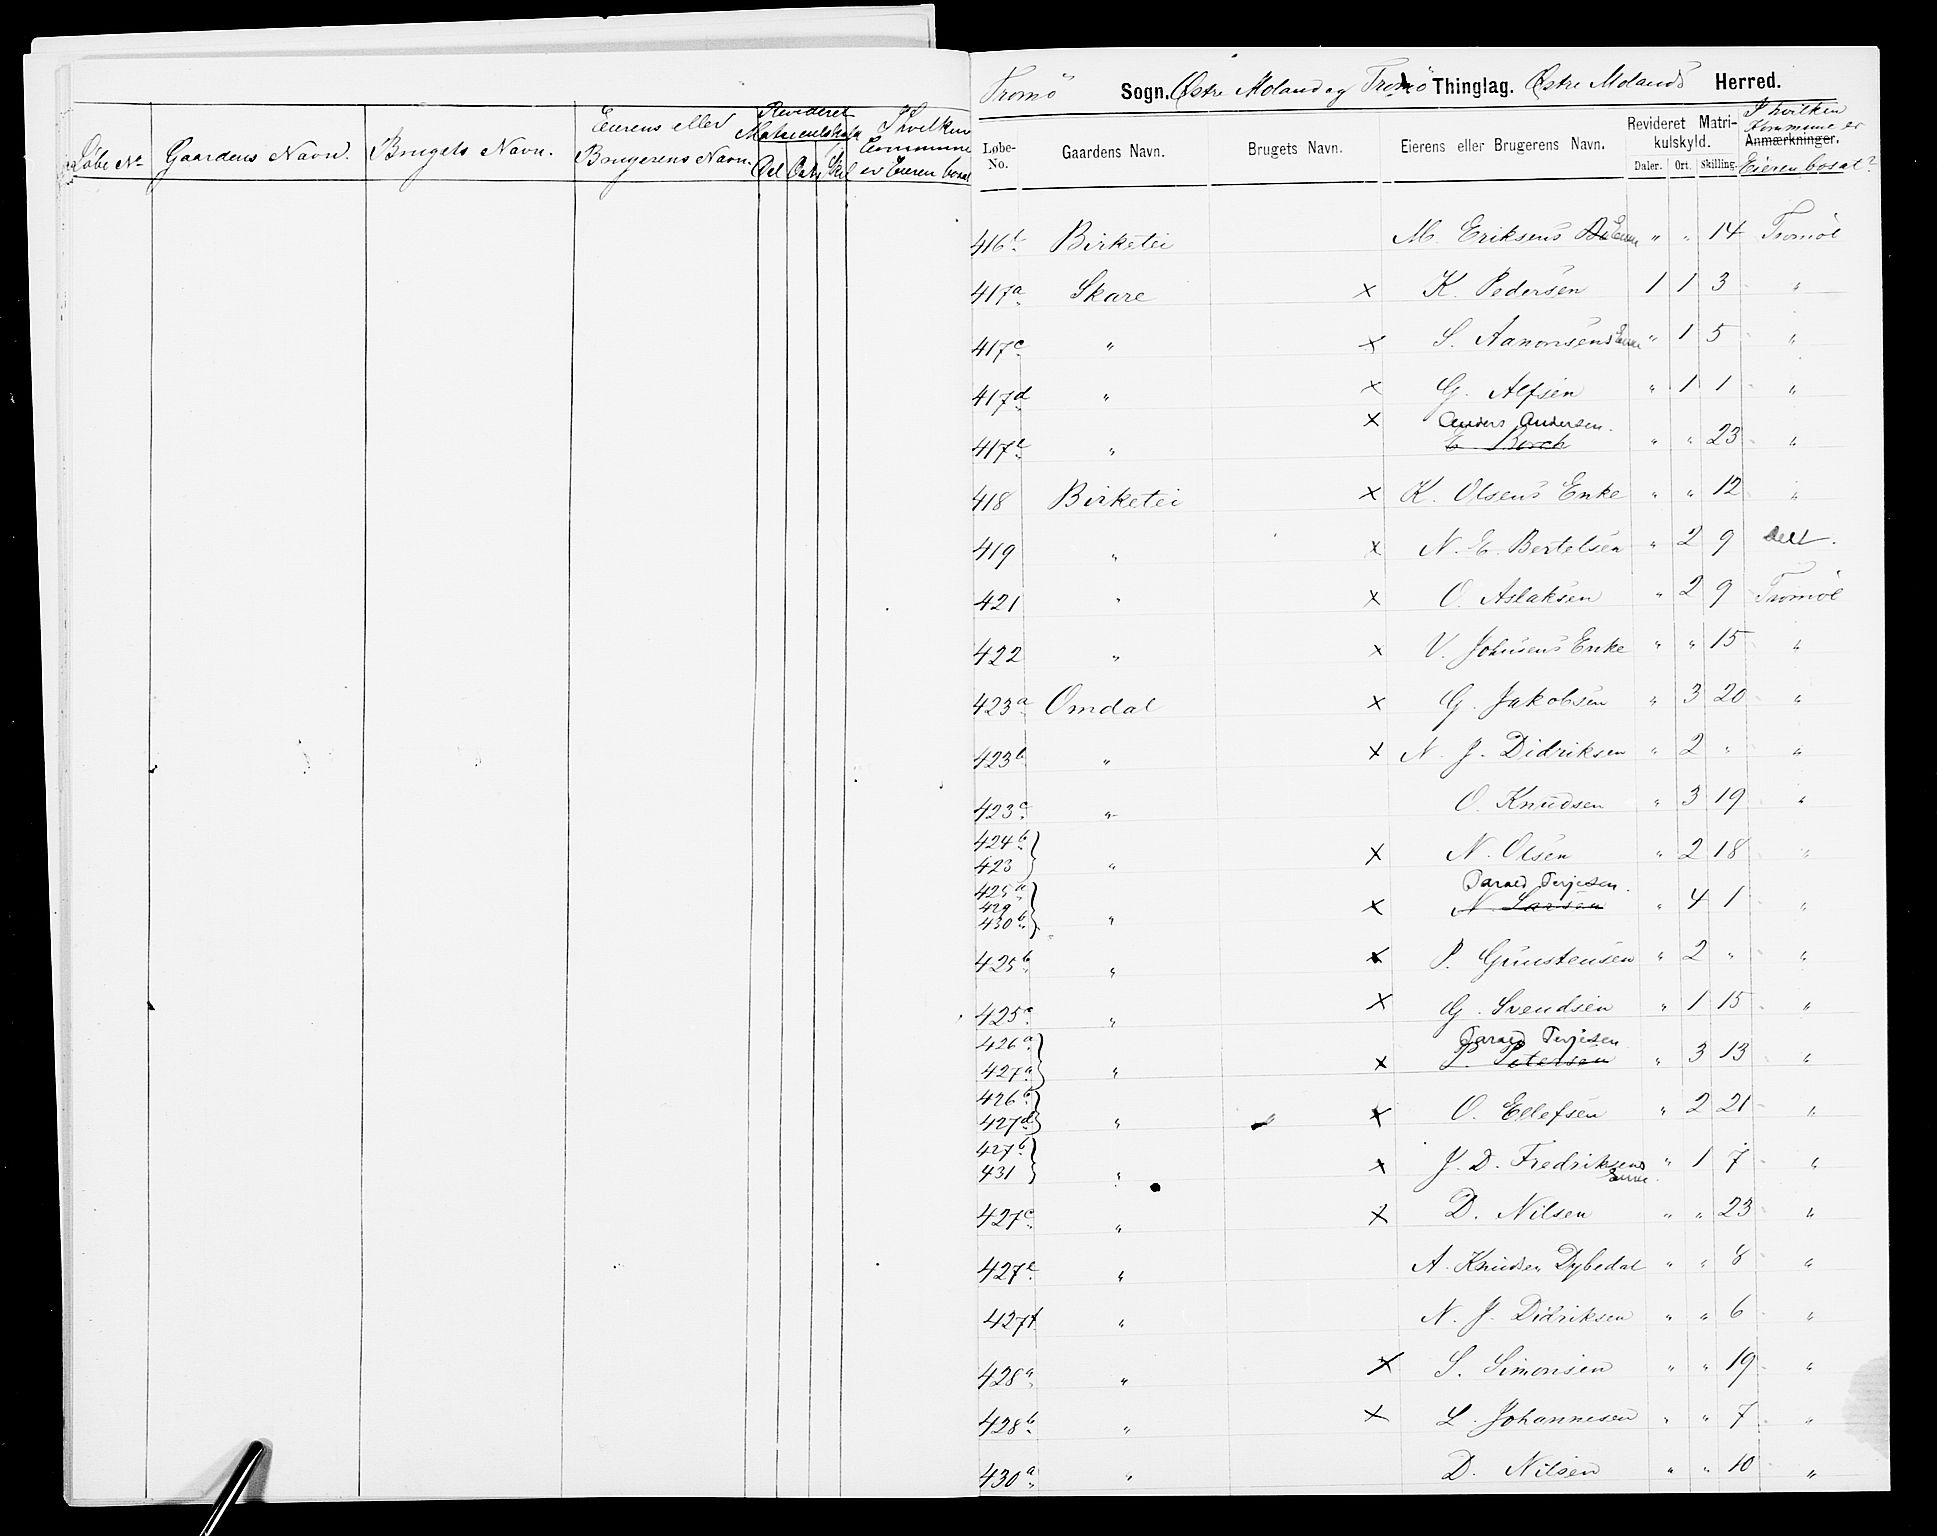 Løbe No Gaardens Navn. Brugets Navn. Eierens eller Brugerens Navn. Revideret Matriculskyld Dal Ort Skil I hvilken Commune er Eieren bosat
Tromö Sogn. Østre Moland og Tromö Thinglag. Østre Molands Herred.
Løbe-No. Gaardens Navn. Brugets Navn. Eierens eller Brugerens Navn. Revideret Matrikulskyld. Daler. Ort. Skilling. Anmærkninger. I hvilken Kommune er Eieren bosat?
416b Birketei M. Eriksens Enke " " 14 Tromöe
417a Skare × K. Pedersen 1 1 3 "
417c " × S. Aanonsens Enke " 1 5 "
417d " × G. Alfsen " 1 1 "
× Anders Andersen.
417e " E Borch " " 23 "
418 Birketei × K. Olsens Enke " " 12 "
419 " × N. E. Bertelsen " 2 9 delt.
421 " × O. Aslaksen " 2 9 Tromöe
422 " × V. Johnsens Enke " " 15 "
423a Omdal × G. Jakobsen " 3 20 "
423b " × N. J. Didriksen " 2 " "
423c " O. Knudsen " 3 19 "
424b
423 " × N. Olsen " 2 18 "
425a Tarald Terjesen.
429
430b " × N. Larsen " 4 1 "
425b " × P. Gunstensen " 2 " "
425c " × G. Svendsen " 1 15 "
426a Tarald Terjesen
427a " × P. Petersen " 3 13 "
426b
427d " × O. Ellefsen " 2 21 "
427b
431 " × J. D. Fredriksens Enke " 1 7 "
427c " × D. Nilsen " " 23 "
427e " A. Knudsen Dybedal " " 8 "
427f " N. J. Didriksen " " 6 "
428a " × S. Simonsen " " 19 "
428b " × L. Johannesen " " 7 "
430a " D. Nilsen " " 10 "